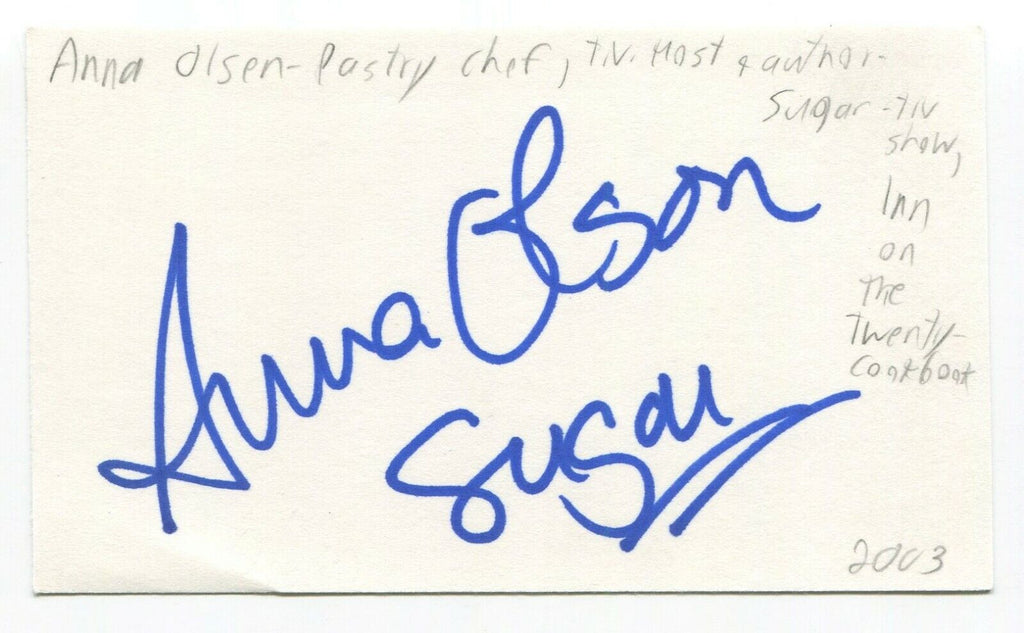 Anna Olsen - Pastry chef, T.V. Host & author -
Sugar - TV
show,
Inn
on
the
Twenty -
Cookbook
Anna Olson
Sugar
2003